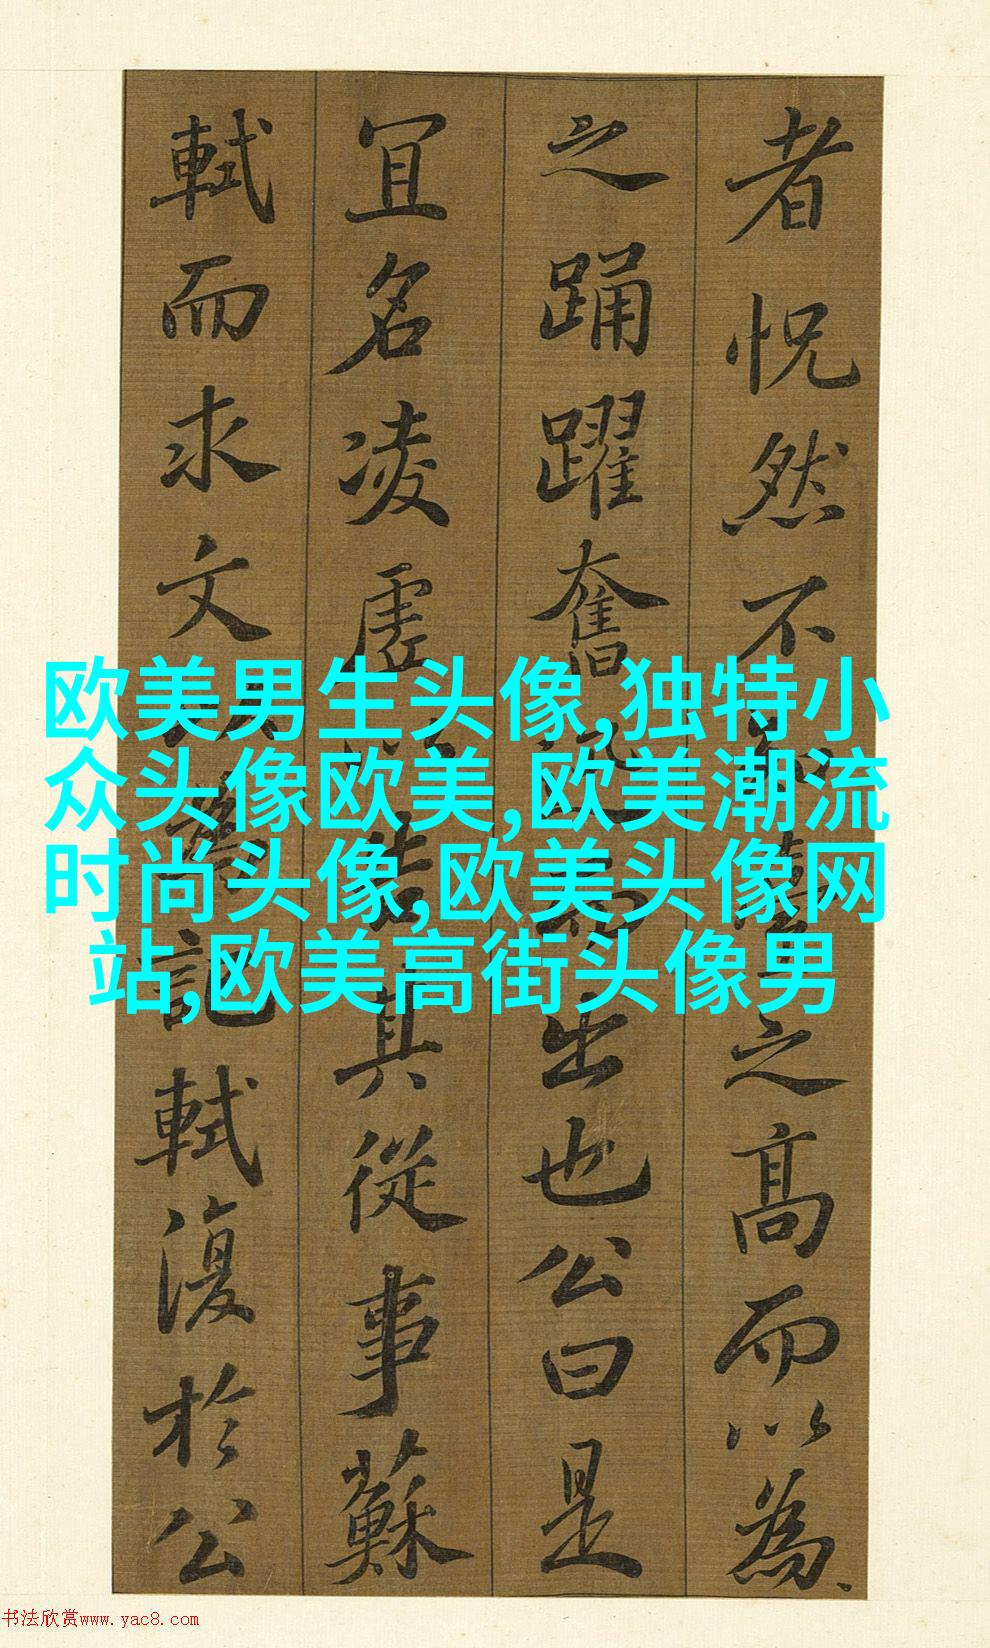 者怳然不知臺之高而以為
之踊躍奮迅而出也公曰是
宜名凌虛以告其從事蘇
軾而求文以為記軾復於公
欧美男生头像,独特小
众头像欧美,欧美潮流
时尚头像,欧美头像网
站,欧美高街头像男
书法欣赏www.yac8.com